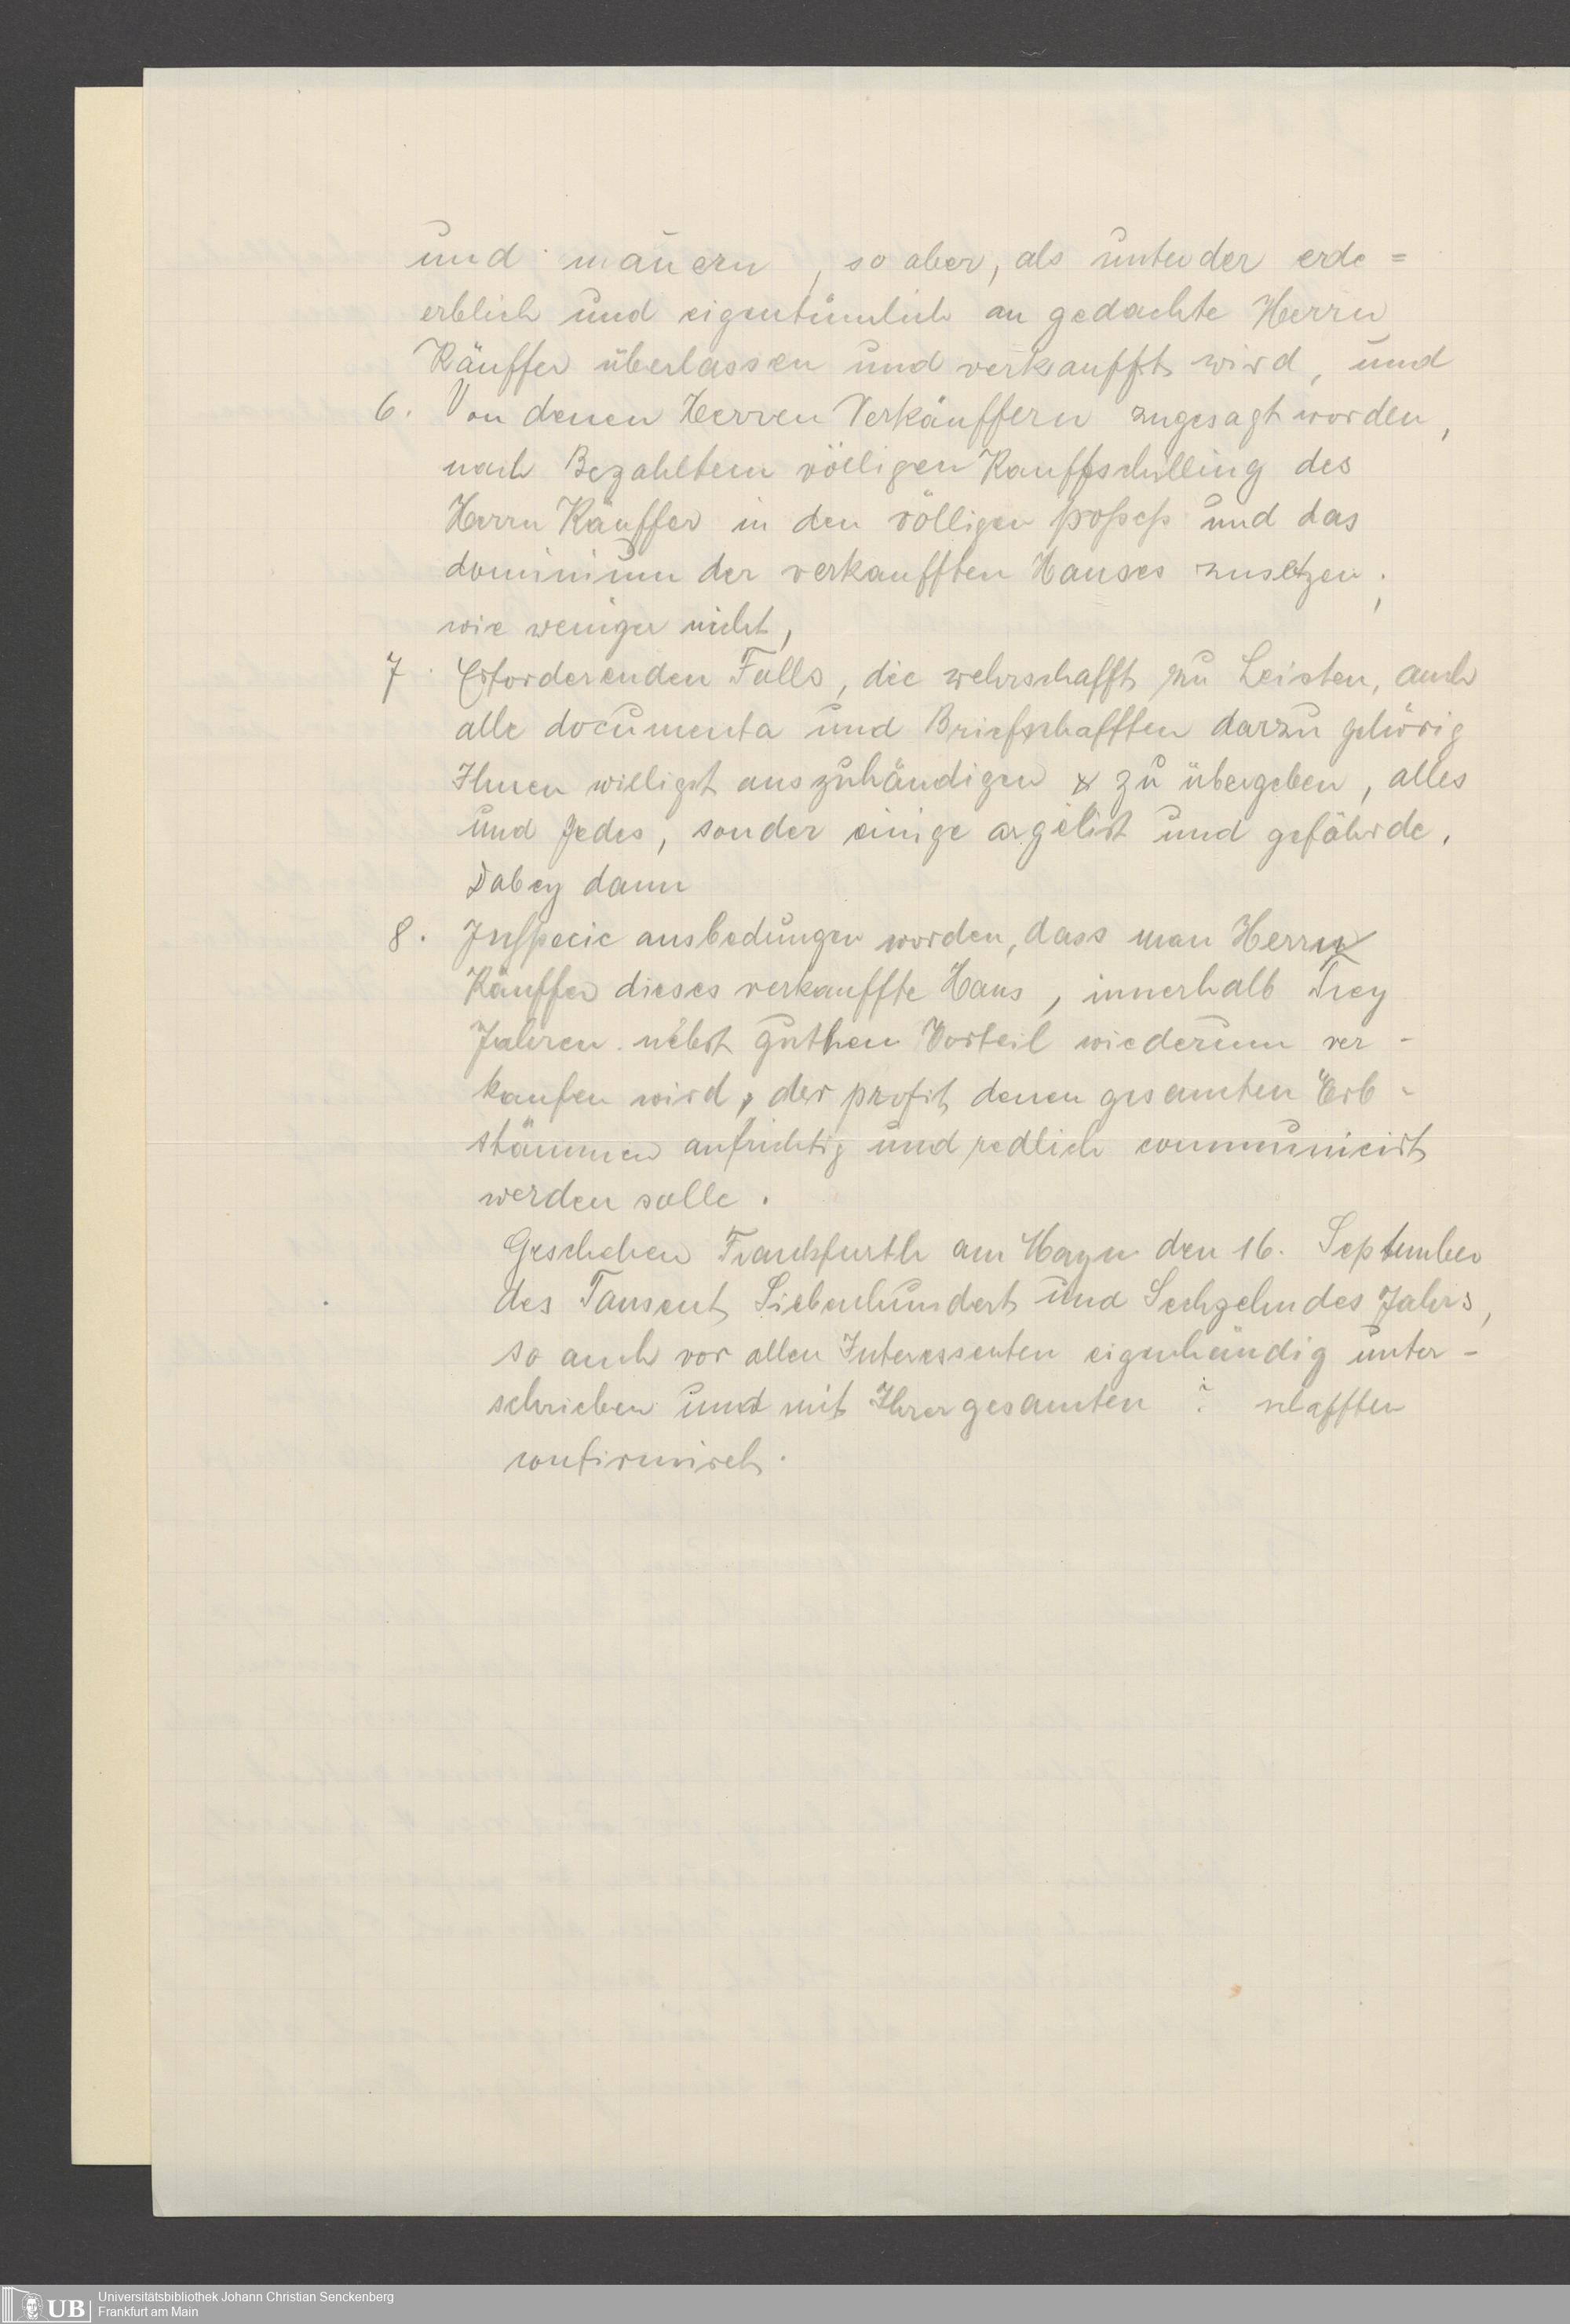 und mauern , so aber, als unter der erde =
erblich und eigentümlich an gedachte Herrn
Käuffer überlassen und verkaufft wird, und
6. Von denen Herren Verkäuffern zugesagt worden,
nach Bezahltem völligen Kauffschilling des
Herrn Käuffer in den völligen poßeß und das
dominium der verkaufften Hauses zusetzen;
wie weniger nicht,
7. Erforderenden Falls, die wehrschafft zu Leisten, auch
alle documenta und Briefschafften darzu gehörig
Ihnen willigst auszuhändigen & zu übergeben, alles
und Jedes, sonder einige argelist und gefährde.
Dabey dann
8. Inspecie ausbedungen worden, dass man Herrn
Käuffer dieses verkauffte Haus, innerhalb Trey
Jahren nebst guthen Vorteil wiederum ver-
kaufen wird, der profit denen gesamten Erb-
stämmen aufrichtig und redlich communicirt
werden solle.
Geschehen Franckfurth am Mayn den 16. September
des Tausent Siebenhundert und Sechzehndes Jahrs,
so auch vor allen Interessenten eigenhändig unter-
schrieben und mit Ihrer gesamten ? schafften
confirmiret.
Universitätsbibliothek Johann Christian Senckenberg
Frankfurt am Main
UB